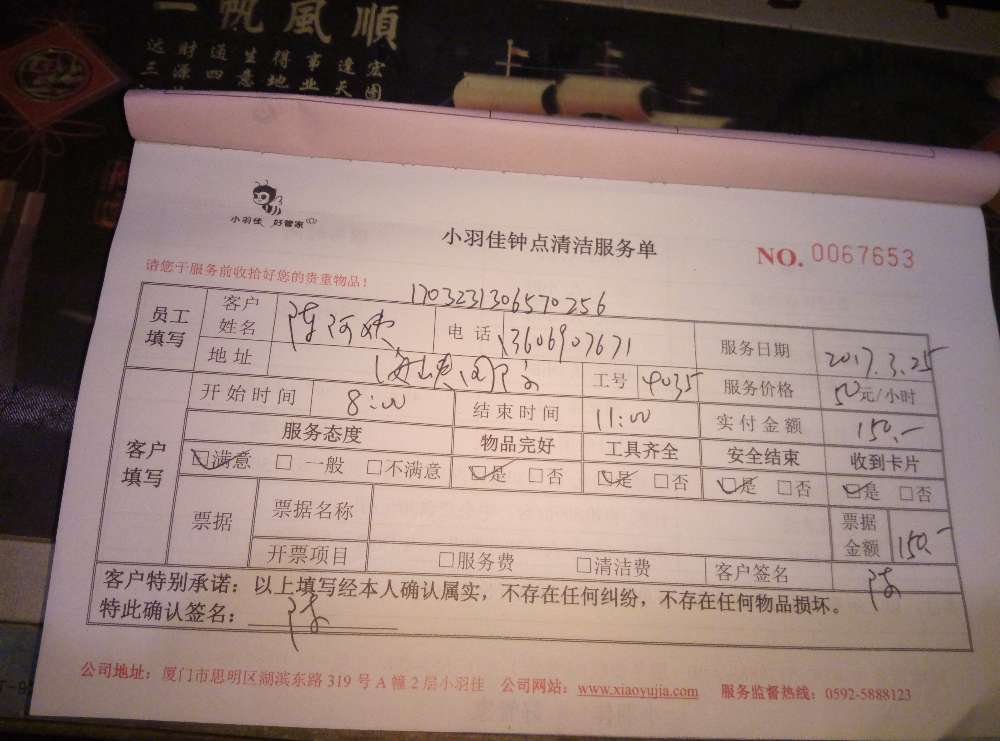 一帆風順
达财通生得事達宏
三源四意地业天圖
小羽佳 好管家
小羽佳钟点清洁服务单
NO. 0067653
请您于服务前收拾好您的贵重物品！
1703231306570256
员工填写 客户姓名 陈阿姨 电话 13606907671 服务日期 2017.3.25
地址 工号 4035 服务价格 50元/小时
客户填写 开始时间 8:00 结束时间 11:00 实付金额 150.-
服务态度 物品完好 工具齐全 安全结束 收到卡片
☑满意 □一般 □不满意 ☑是 □否 ☑是 □否 ☑是 □否 ☑是 □否
票据 票据名称 票据金额 150.-
开票项目 □服务费 □清洁费 客户签名 陈
客户特别承诺：以上填写经本人确认属实，不存在任何纠纷，不存在任何物品损坏。
特此确认签名：陈
公司地址：厦门市思明区湖滨东路 319 号 A 幢 2 层小羽佳 公司网站：www.xiaoyujia.com 服务监督热线：0592-5888123